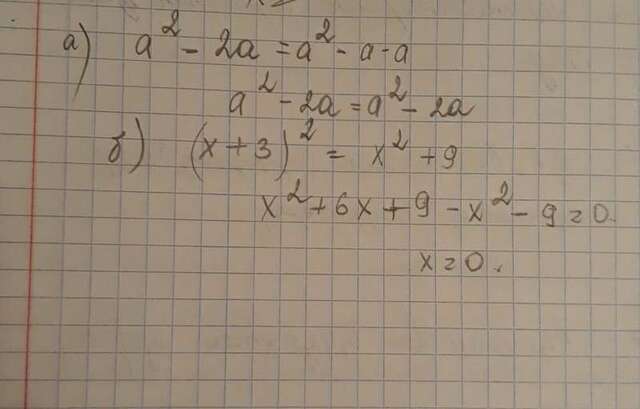 а) a² - 2a = a² - a - a
a² - 2a = a² - 2a
б) (x + 3)² = x² + 9
x² + 6x + 9 - x² - 9 = 0.
x = 0.